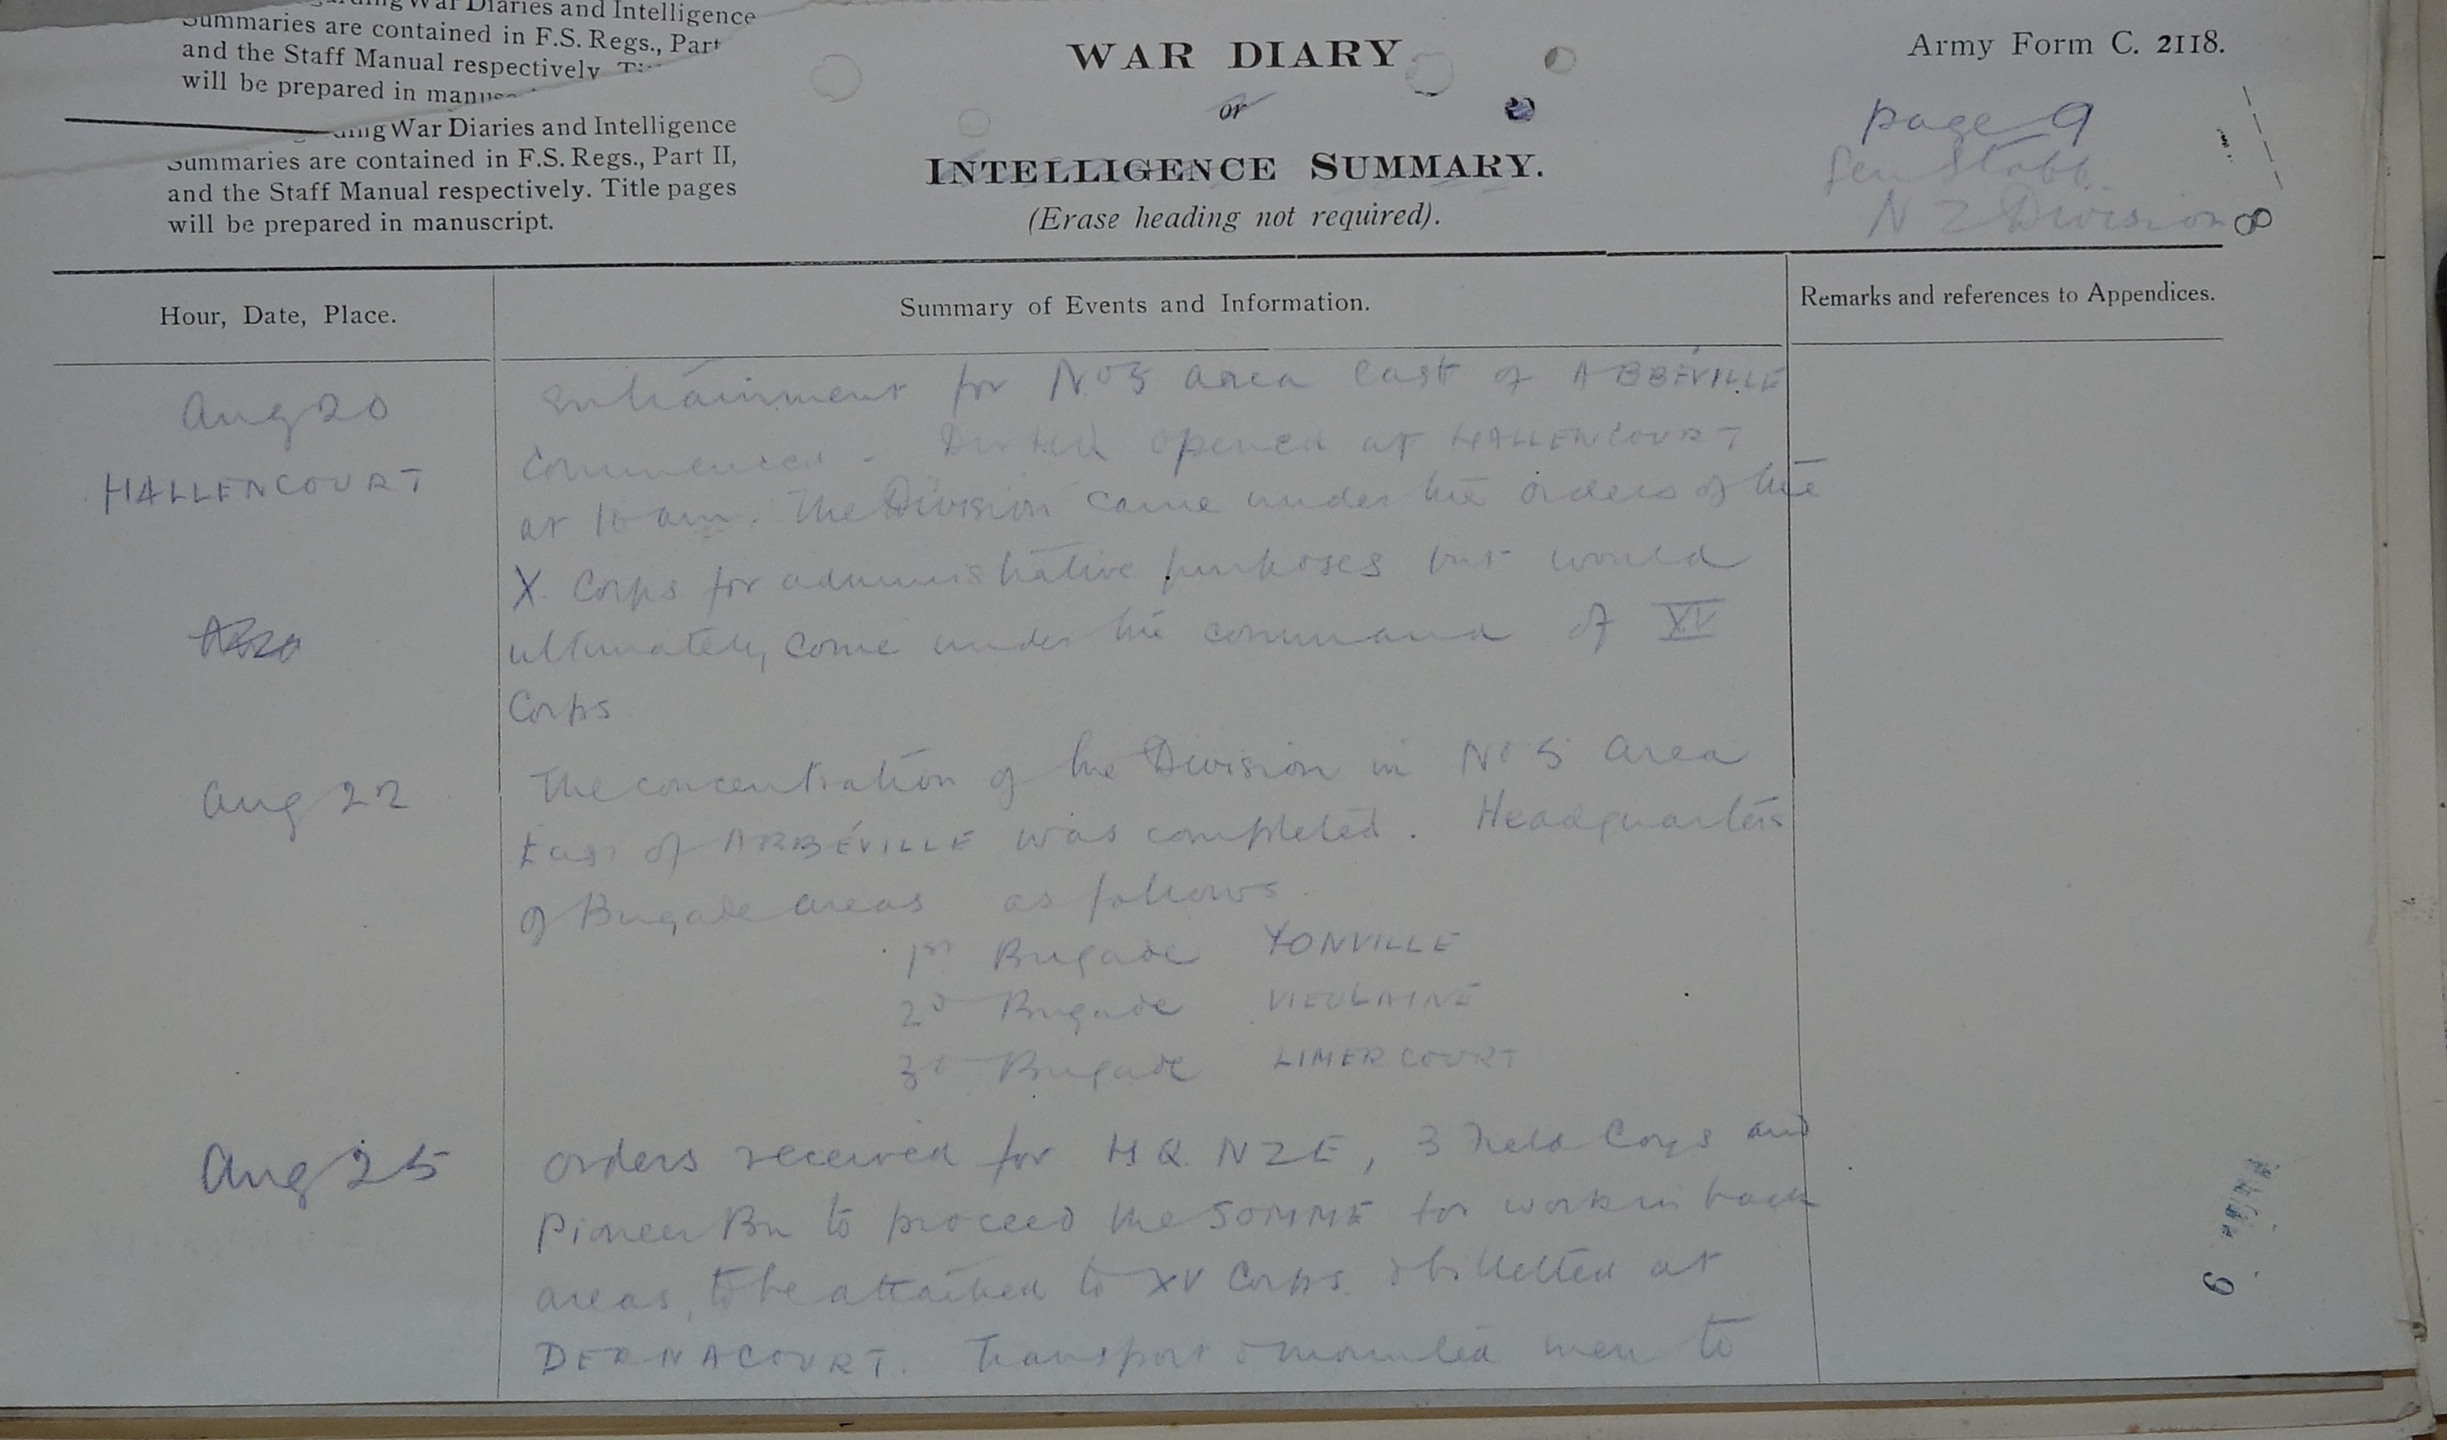 War Diaries and Intelligence
Summaries are contained in F.S. Regs., Part
and the Staff Manual respectively.
will be prepared in
War Diaries and Intelligence
Summaries are contained in F.S. Regs., Part II,
and the Staff Manual respectively. Title pages
will be prepared in manuscript.
WAR DIARY
or
INTELLIGENCE SUMMARY.
(Erase heading not required).
Army Form C. 2118.
page 9
Gen Staff
N Z Division
8
Hour, Date, Place.
Summary of Events and Information.
Remarks and references to Appendices.
Aug 20
HALLENCOURT
Entrainment for No 5 area east of ABBÉVILLE
commenced. opened at HALLENCOURT
at 10 am. The Division came under the orders of the
X. Corps for administrative purposes but would
ultimately come under the command of XV
Corps
Aug 22
The concentration of the Division in No 5 area
East of ABBÉVILLE was completed. Headquarters
of Brigade areas as follows.
1st Brigade YONVILLE
2d Brigade VIEULAINE
3d Brigade LIMERCOURT
Aug 25
orders received for HQ. NZE, 3 Field Coys and
Pioneer Bn to proceed the SOMME for work in back
areas, to be attached to XV Corps & billetted at
DERNACOURT. Transport & mounted men to
9